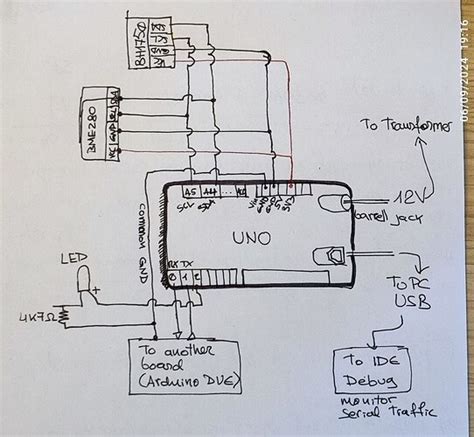 06/09/2024 19:16
BH1750
SDA
SCL
GND
BME280
To Transformer
12V
barrel jack
A5 A4 ... A0
SCL SDA
UNO
common GND
RX TX
0 1 2
LED
+
4K7Ω
To PC
USB
To another
board
(Arduino DUE)
To IDE
Debug
monitor
Serial Traffic